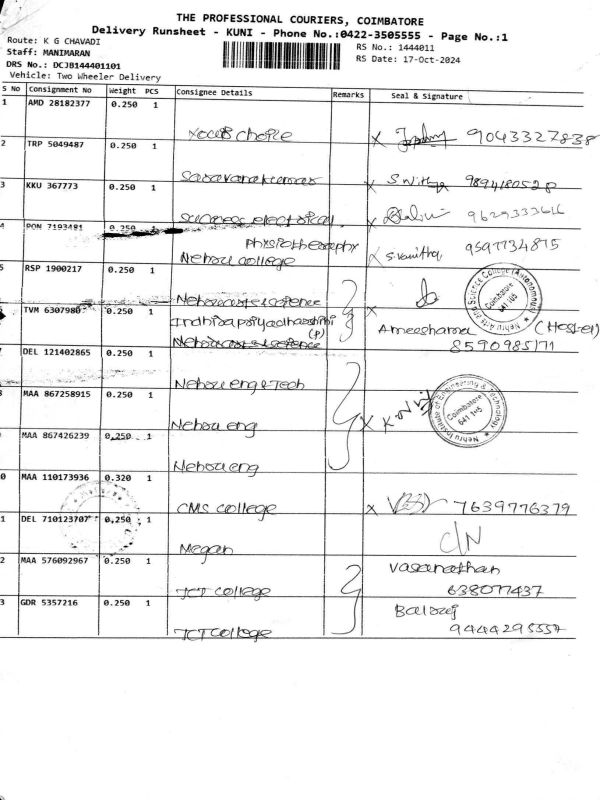 THE PROFESSIONAL COURIERS, COIMBATORE
Delivery Runsheet - KUNI - Phone No.:0422-3505555 - Page No.:1
Route: K G CHAVADI
RS No.: 1444011
Staff: MANIMARAN
RS Date: 17-Oct-2024
DRS No.: DCJB144401101
Vehicle: Two Wheeler Delivery
S No Consignment No Weight PCS Consignee Details Remarks Seal & Signature
1 AMD 28182377 0.250 1
choice X 9043327838
2 TRP 5049487 0.250 1
Saravanakumar X 9894180528
3 KKU 367773 0.250 1
electrical. X 9629333616
4 PON 7193481 0.250 1
Physiotheraphy
Nehru college X 9597734875
5 RSP 1900217 0.250 1
Nehru arts & science X
Nehru Arts and Science College (Autonomous)
Coimbatore
641 105
TVM 6307980 0.250 1
Indhirapriyadharshini
(P)
Nehru arts & science
Ameesharna (Hostel)
8590985171
DEL 121402865 0.250 1
Nehru eng & Tech
MAA 867258915 0.250 1
Nehru eng X
Nehru Institute of Engineering & Technology
Coimbatore
641 105
MAA 867426239 0.250 1
Nehru eng
0 MAA 110173936 0.320 1
CMS college X 7639776379
1 DEL 710123707 0.250 1
Megan C/N
2 MAA 576092967 0.250 1
Vasanathan
JCT college 638077437
3 GDR 5357216 0.250 1
Balaraj
JCT college 9444295557